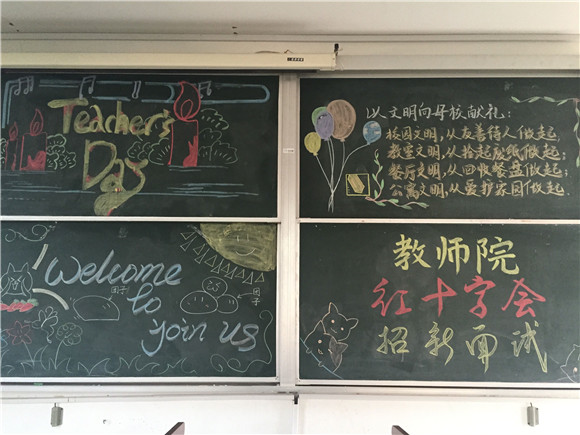 Teacher's
Day
以文明向母校献礼：
校园文明，从友善待人做起；
教室文明，从拾起废纸做起；
餐厅文明，从回收餐盘做起；
公寓文明，从爱护家园做起.
Welcome
to
join us
团子
团子
教师院
红十字会
招新面试